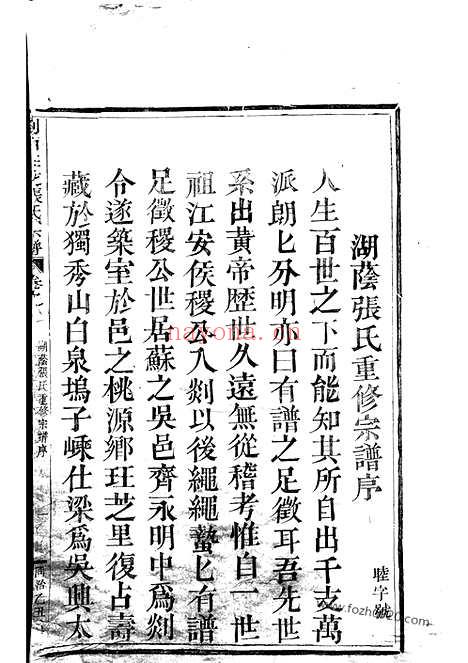 湖蔭張氏重修宗譜序
睦字號
人生百世之下而能知其所自出千支萬
派朗匕分明亦曰有譜之足徵耳吾先世
系出黃帝歷世久遠無從稽考惟自一世
祖江安侯稷分入剡以後繩繩蟄匕有譜
足徵稷公世居蘇之吳邑齊永明中為剡
令遂築室於邑之桃源鄉玨芝里復占壽
藏於獨秀山白泉塢子嵊仕梁為吳興太
張氏宗譜 卷
湖蔭張氏重修宗譜序
nayona.cn
www.fozhu920.com